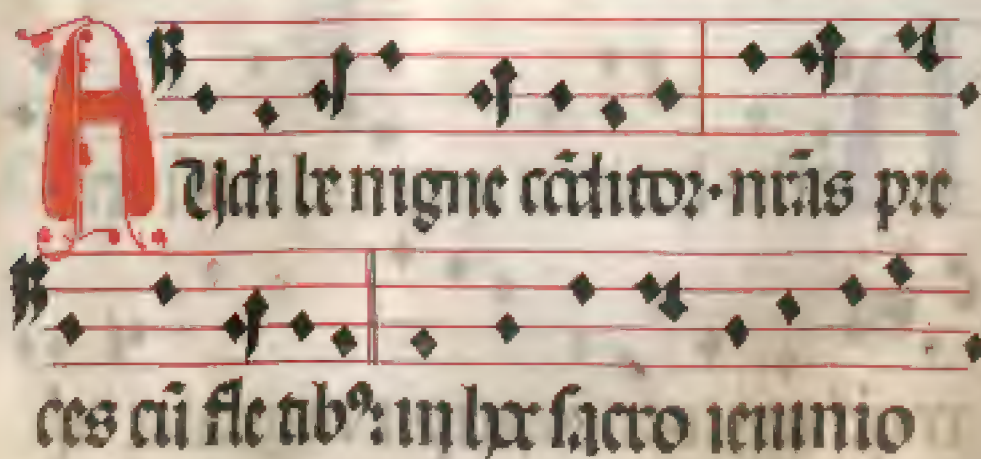 AUdi be nigne cōditor. nr̄as pre
ces cū fle tibꝰ: in hoc sacro ieiunio